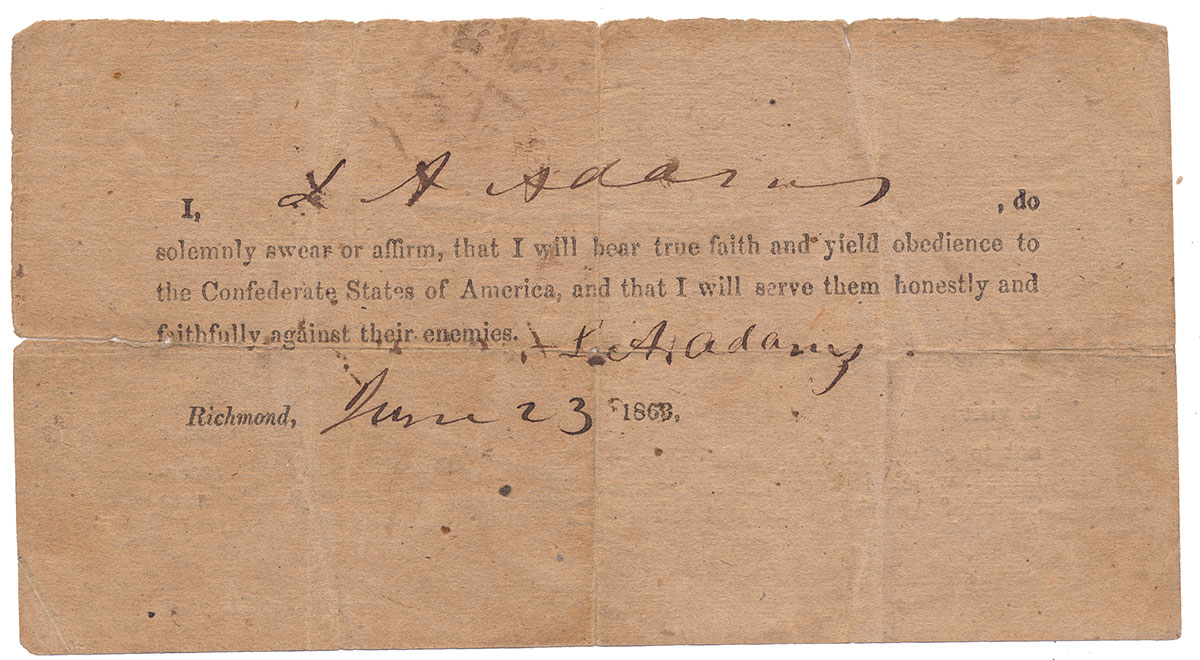 I, L A Adams, do
solemnly swear or affirm, that I will bear true faith and yield obedience to
the Confederate States of America, and that I will serve them honestly and
faithfully against their enemies. L. A. Adams.
Richmond, June 23 1863,